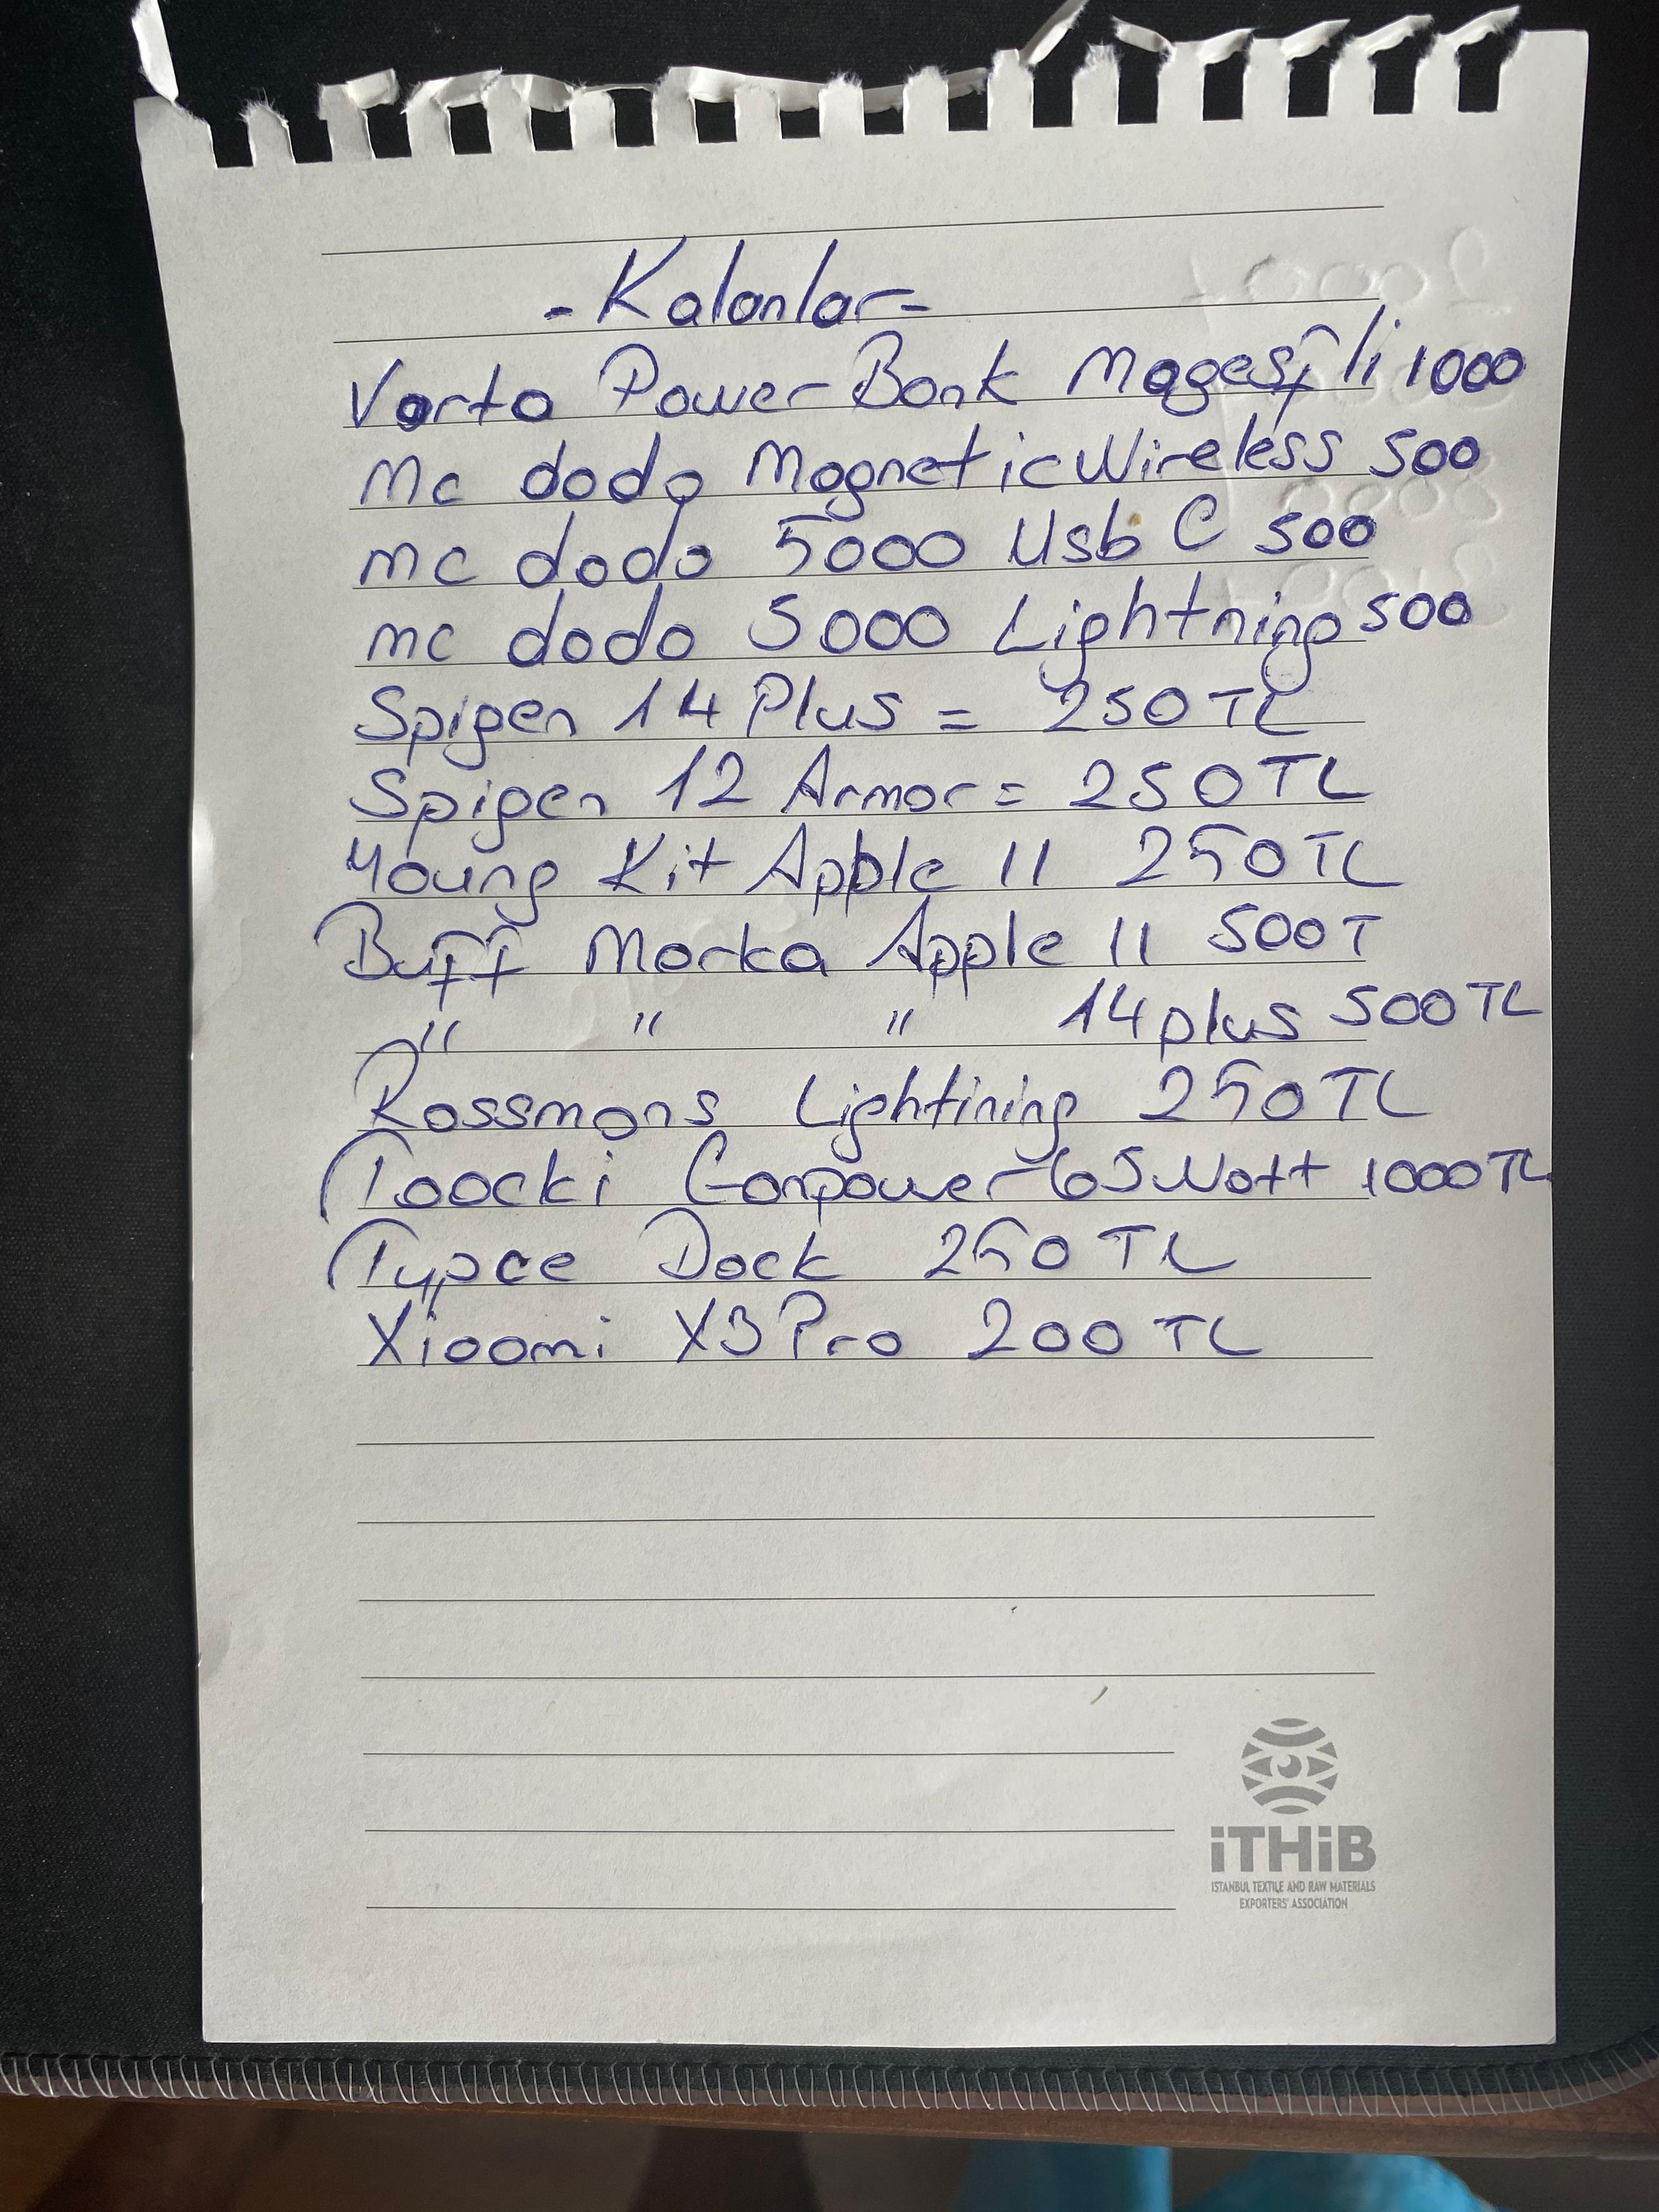 -Kalanlar-
Varta PowerBank Magesfli 1000
Mc dodo Magnetic Wireless 500
mc dodo 5000 Usb C 500
mc dodo 5000 Lightning 500
Spigen 14 Plus = 250 TL
Spigen 12 Armor = 250 TL
Young Kit Apple 11 250 TL
Buff Marka Apple 11 500 T
" " " 14 plus 500 TL
Rossmans Lightining 250 TL
Toocki Ganpower 65 Watt 1000 TL
Typce Dock 250 TL
Xiaomi X3 Pro 200 TL
iTHiB
ISTANBUL TEXTILE AND RAW MATERIALS
EXPORTERS' ASSOCIATION